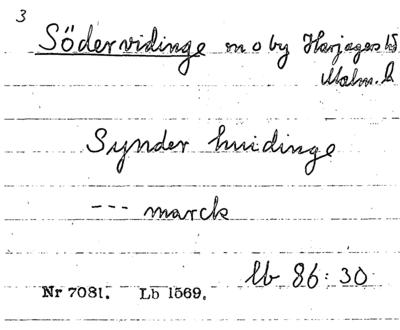 3
Södervidinge sn o by Harjagers hd
Malm. l.
Synder huidinge
--- marck
lb 86:30
Nr 7081. Lb 1569.